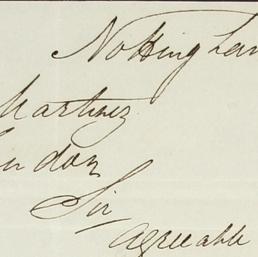 Nottingham
Martinez
London
Sir
Agreeable